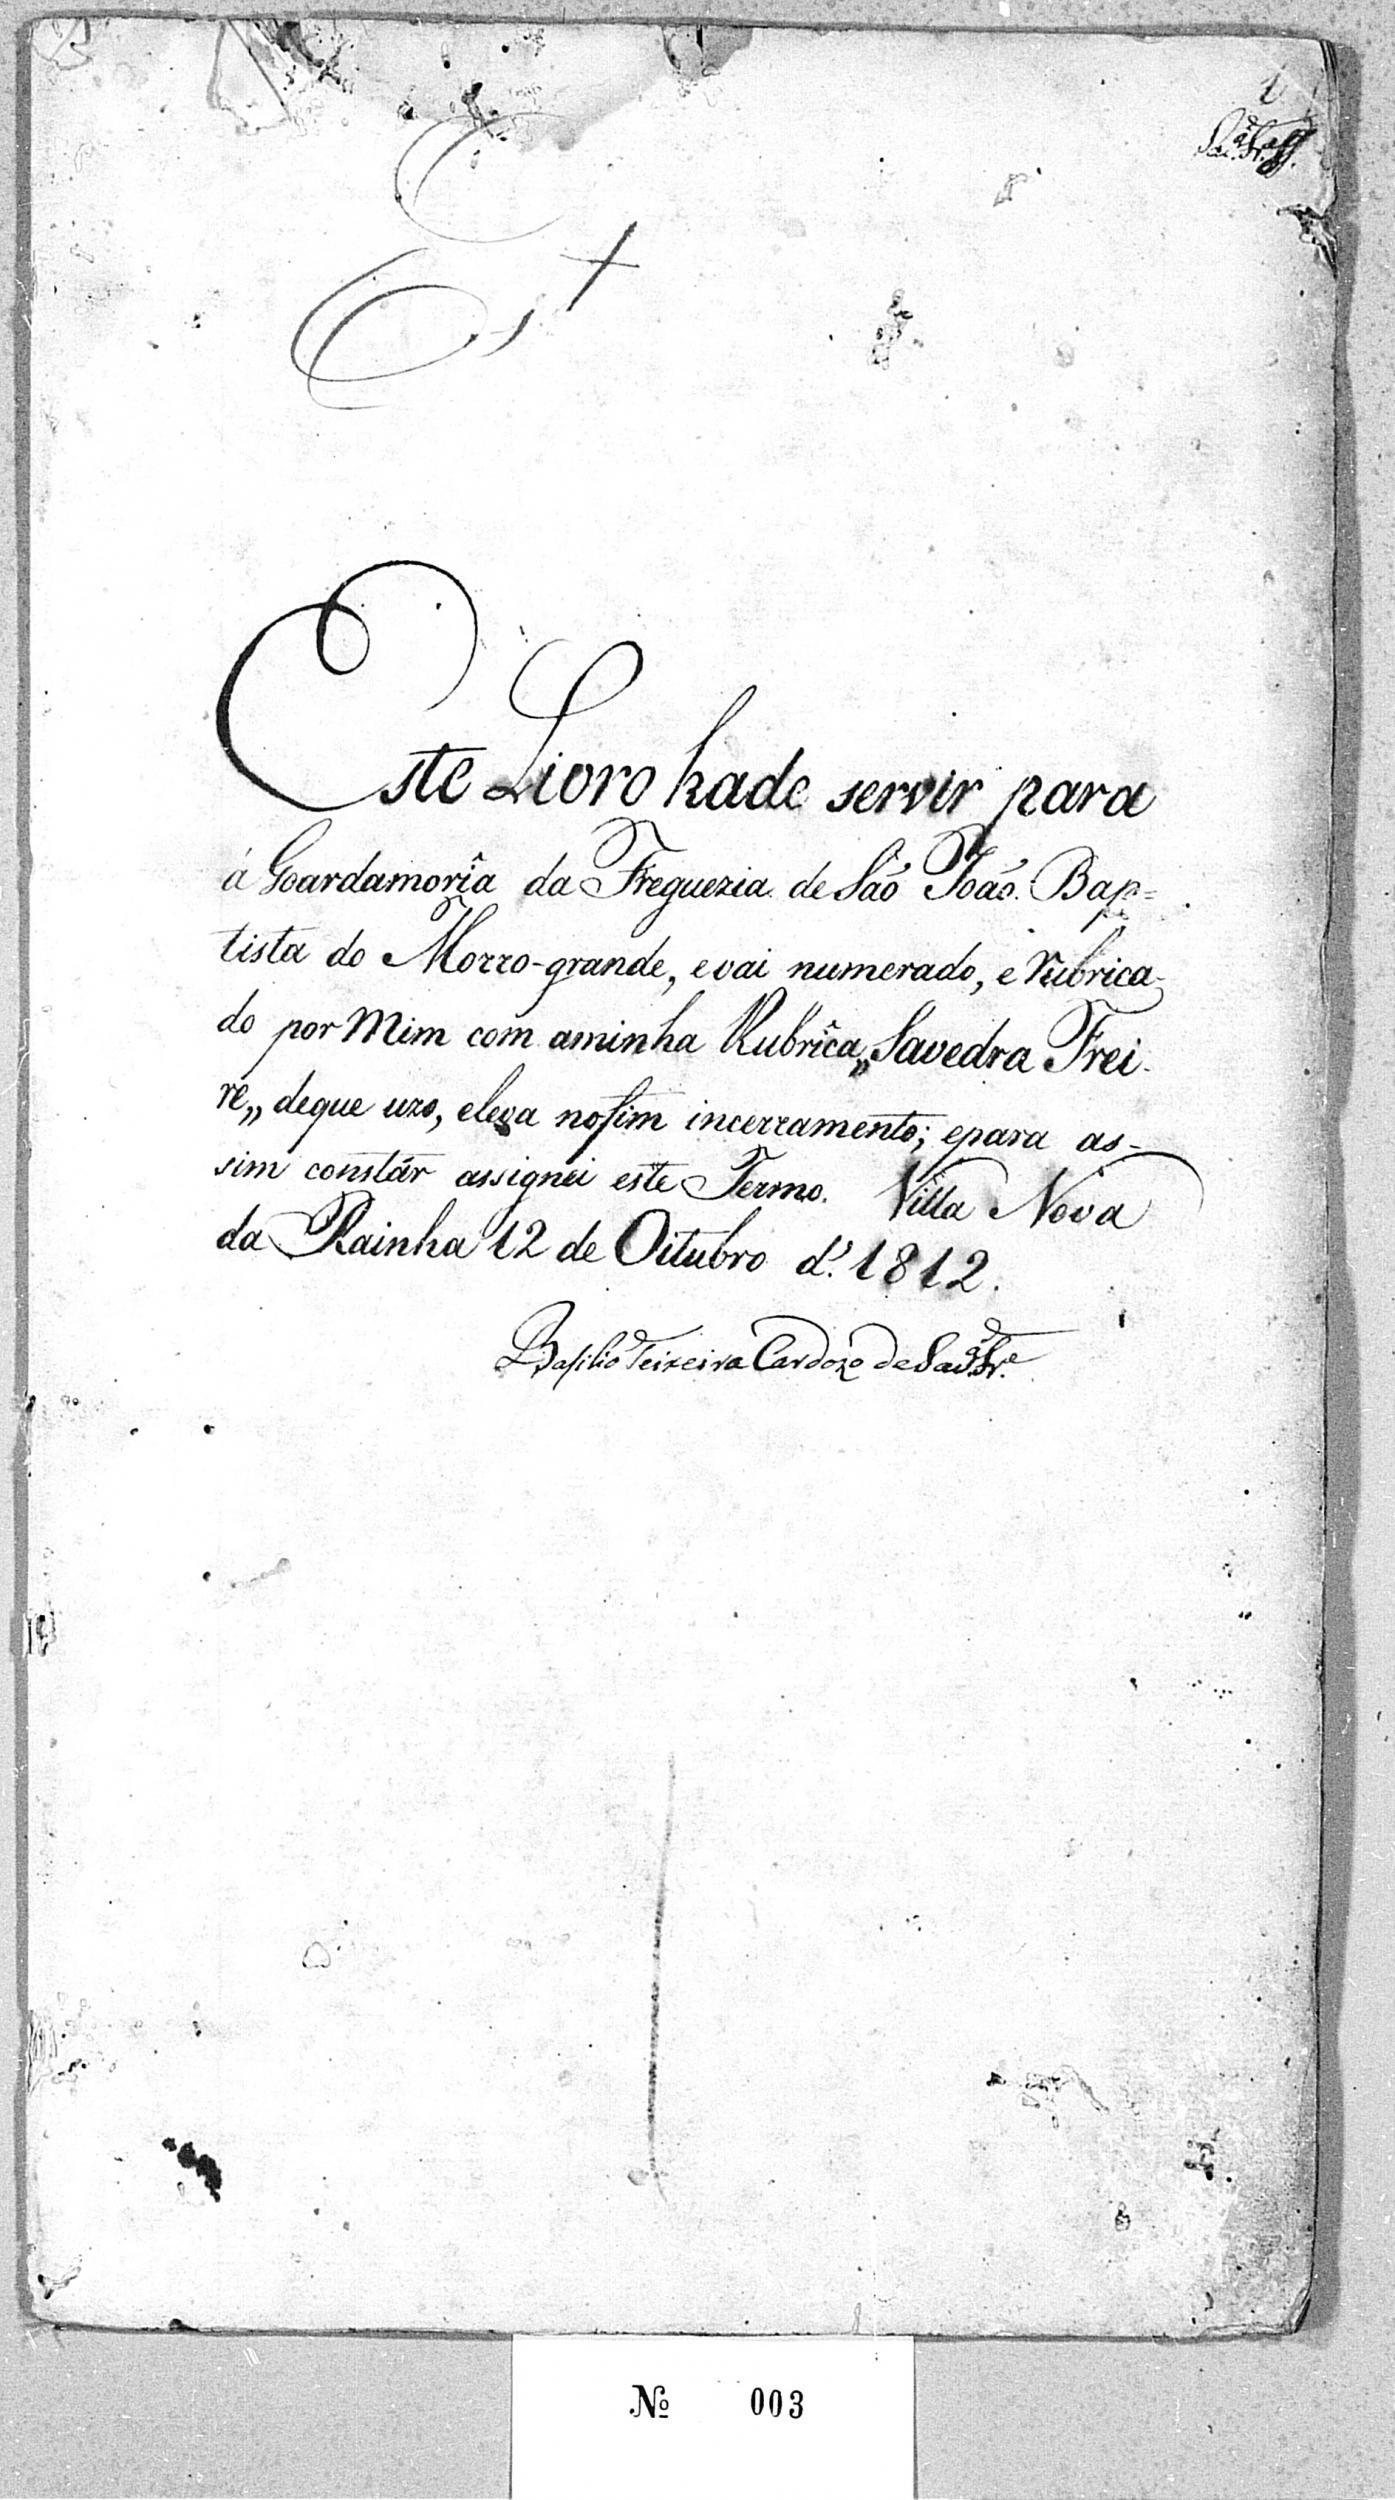 1
Este Livro hade servir para
á Goardamorîa da Freguezia de São João Bap=
tista do Morro-grande, evai numerado, e Rubrica-
do por Mim com aminha Rubrîca,, Savedra Frei-
re,, deque uzo, eleva nofim incerramento; epara as-
sim constár assignei este Termo. Villa Nova
da Rainha 12 de Oitubro d'. 1812.
Basilio Teixeira Cardozo de Savdª Frᵉ
Nº 003